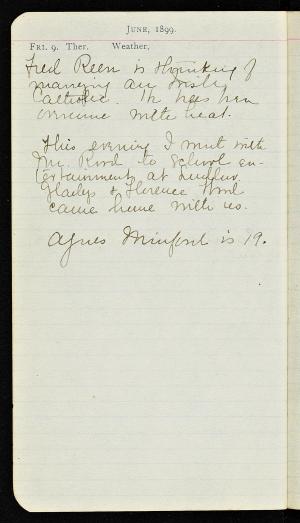 JUNE, 1899.
FRI. 9. Ther. Weather,
Fred Reen is thinking of
marrying an Irish
Catholic. The trees
with heat.
This evening I went with
Mr. to School en-
tertainment at
Gladys & Florence
came home with us.
Agnes Minford is 19.